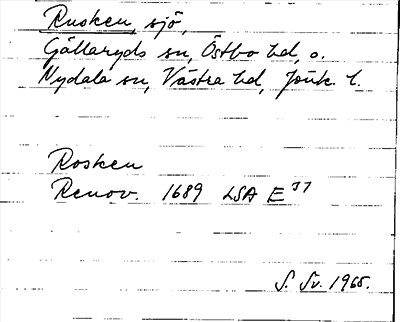 Rusken, sjö,
Gällaryds sn, Östbo hd, o.
Nydala sn, Västra hd, Jönk. l.
Rosken
Renov. 1689 LSA E 77
S. Sv. 1965.